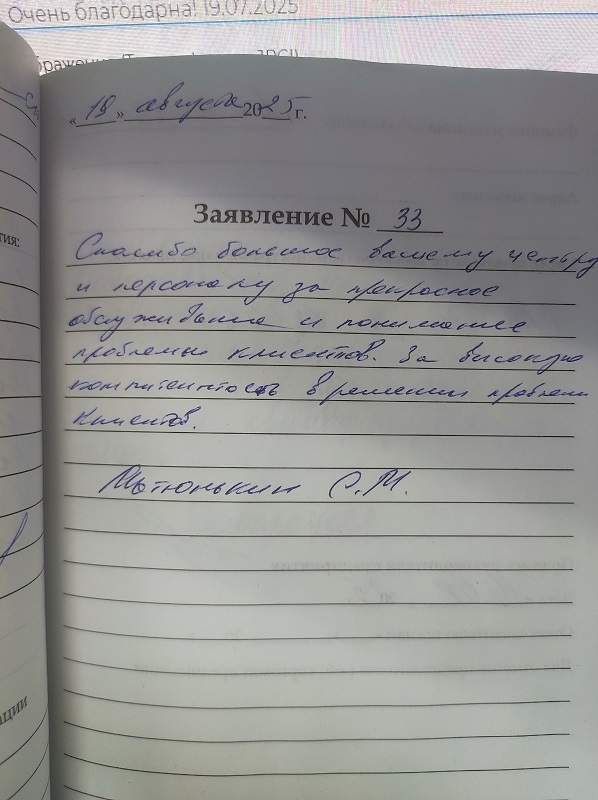 Очень благодарна! 19.07.2025
«19» августа 2025 г.
Заявление № 33
Спасибо большое вашему центру
и персоналу за прекрасное
обслуживание и понимание
проблемы клиентов. За высокую
компитентность в решении проблем
клиентов.
Матюнькин С.М.
тия:
ации